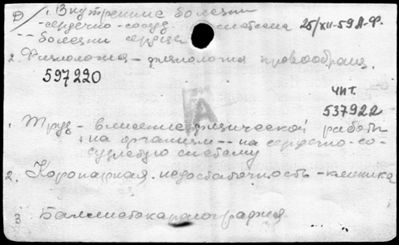 1. Внутренние болезни
сердечно-сосуд. система 25/XII-59 А.Ф.
— болезни сердца
2. Физиология — физиология кровообращ.
597220
чит.
537922
1. Труд — влияние физической работы
на организм — на сердечно-со-
судистую систему
2. Коронарная недостаточность — клиника
3. Баллистокардиография